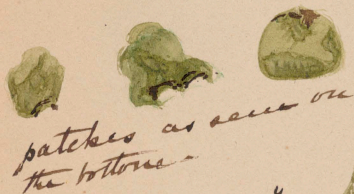 patches as seen on
the bottom -